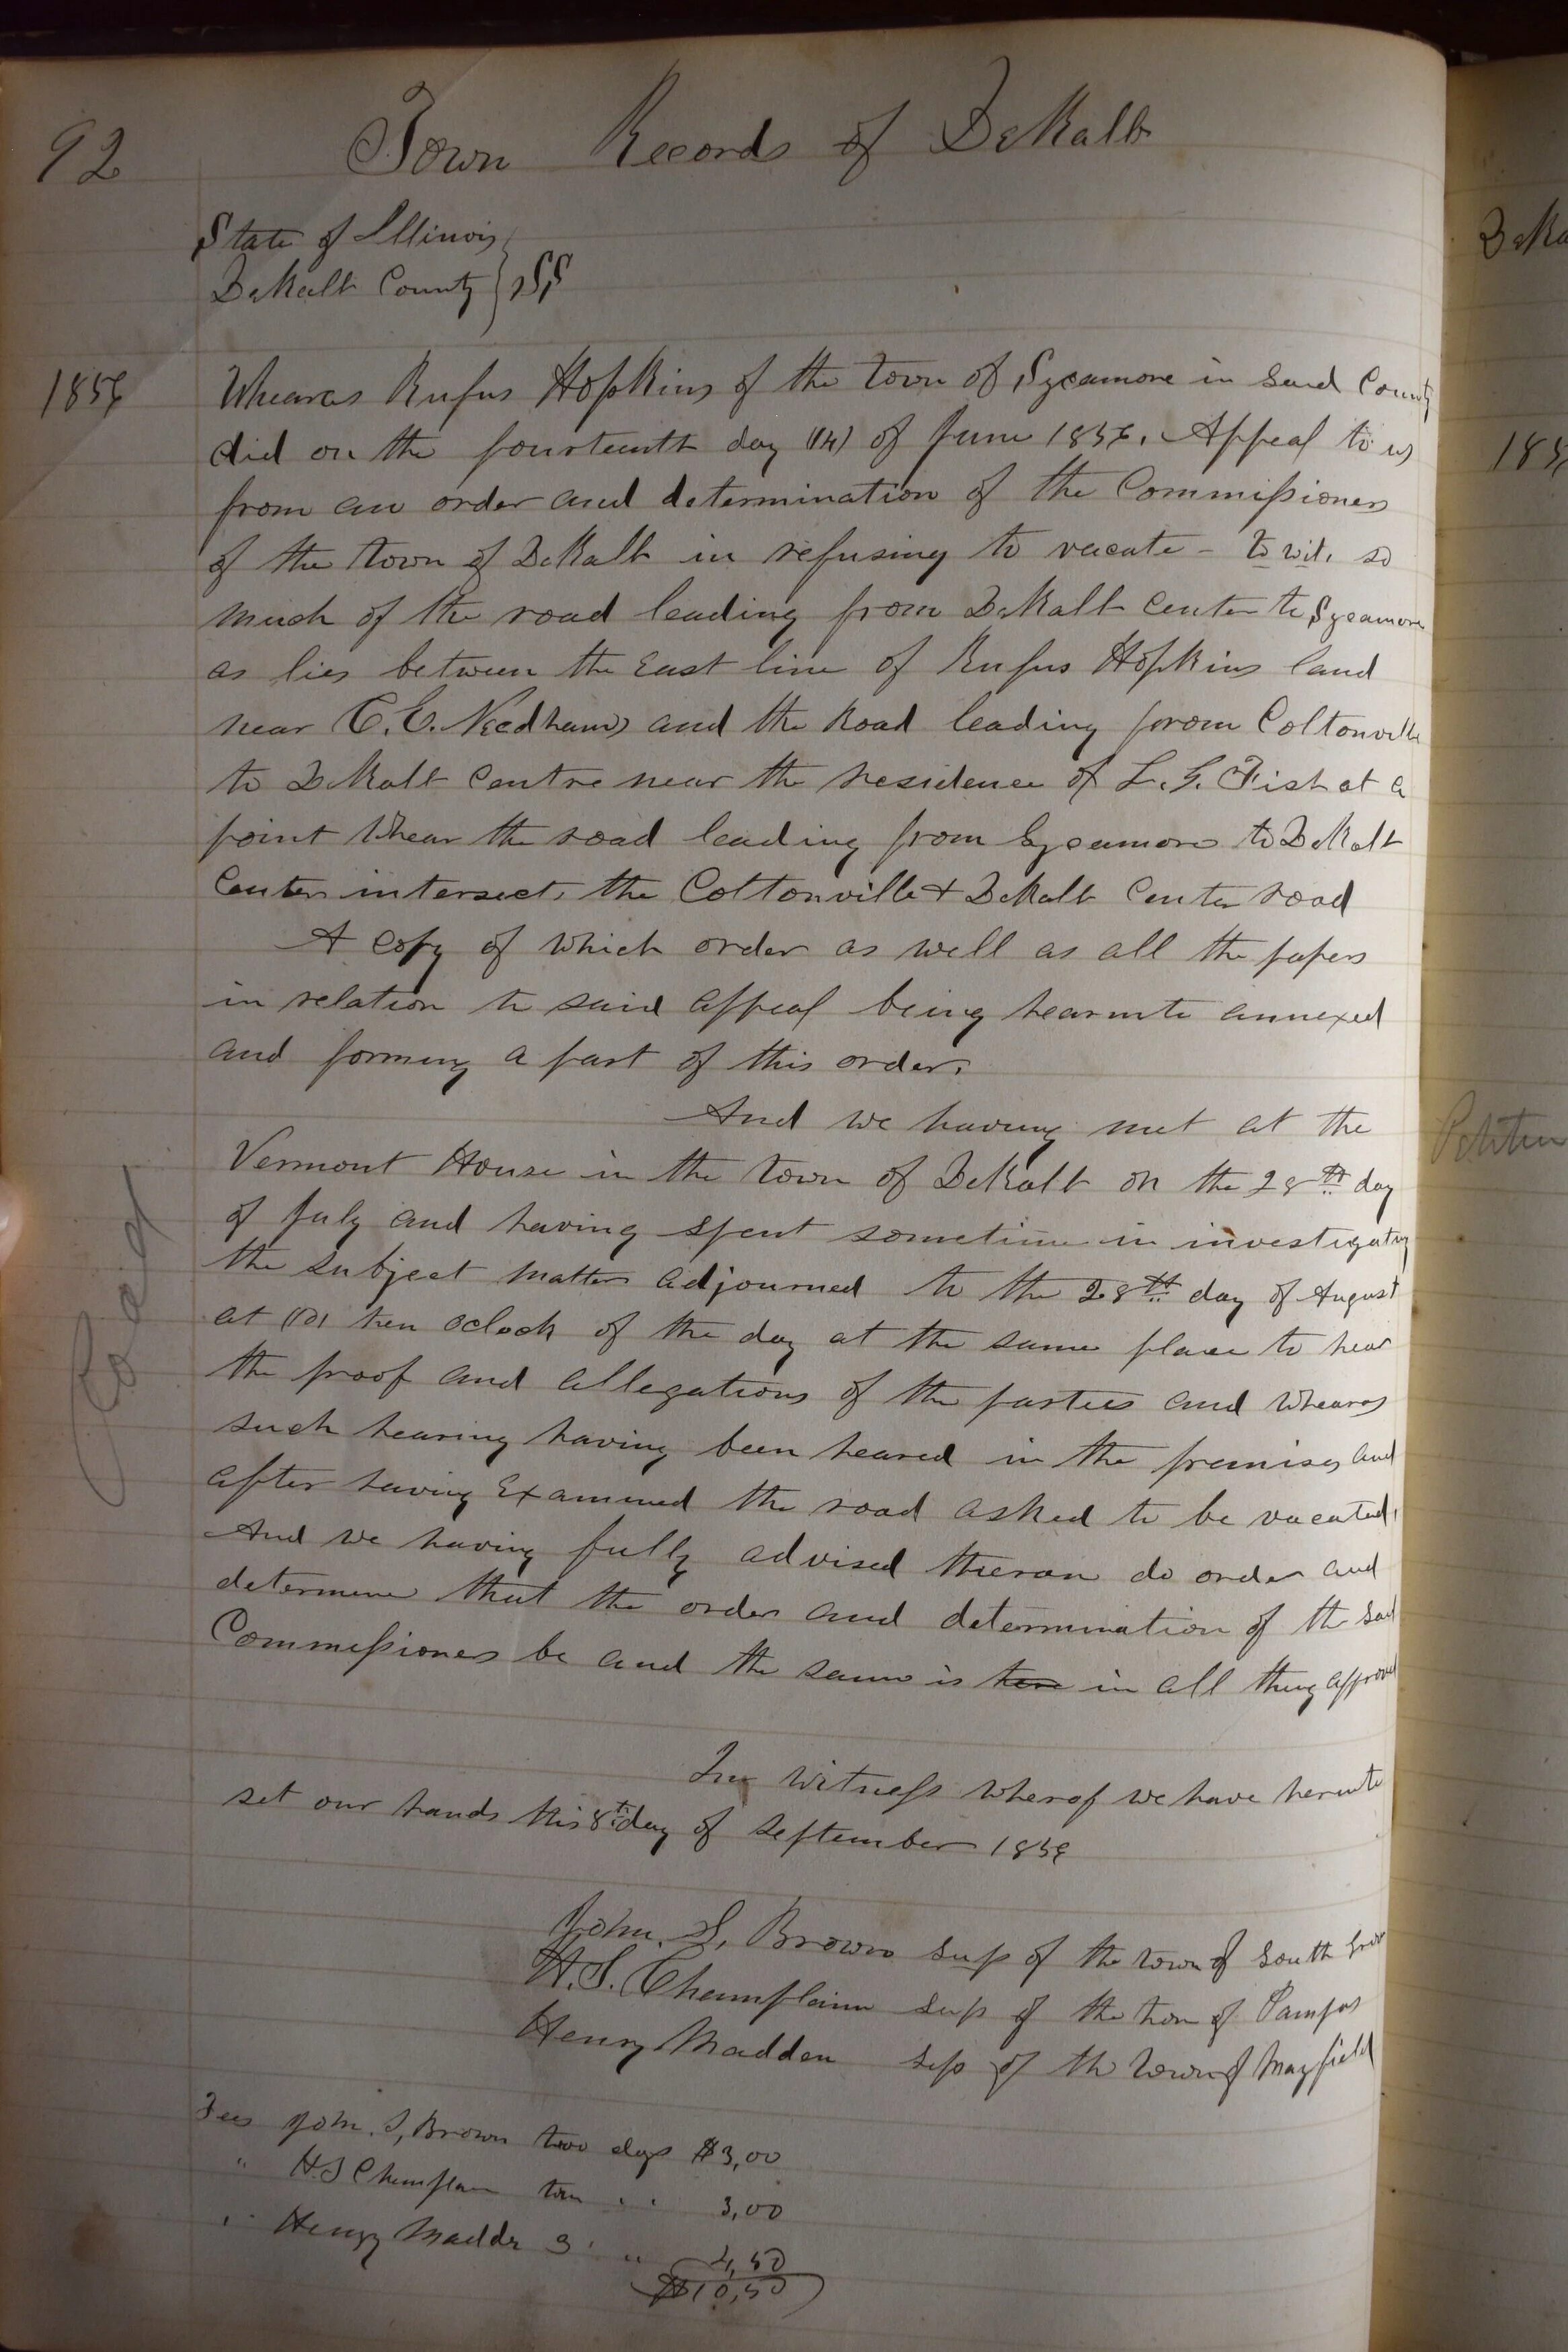 92
Town Records of DeKalb
State of Illinois
DeKalb County } SS
1856
Whearas Rufus Hopkins of the town of Sycamore in said County
did on the fourteenth day (14) of June 1856. Appeal to us
from an order and determination of the Commissioners
of the town of DeKalb in refusing to vacate - to wit, so
much of the road leading from DeKalb Center to Sycamore
as lies between the East line of Rufus Hopkins land
near C.E. Needhams and the Road leading from Coltonville
to DeKalb Centre near the residence of L. G. Fish at a
point Whear the road leading from Sycamore to DeKalb
Center intersects the Coltonville & DeKalb Center road
A copy of which order as well as all the papers
in relation to said appeal being hearunto annexed
and forming a part of this order.
And we having met at the
Vermont House in the town of DeKalb on the 28th day
of July and having spent sometime in investigating
the subject matter adjourned to the 28th day of August
at (10) ten oclock of the day at the same place to hear
the proof and allegations of the parties and Whearas
such hearing having been heared in the premises and
after having Examined the road asked to be vacated,
And we having fully advised theron do order and
determine that the order and determination of the said
Commissioners be and the same is in all thing approved
In Witness Wherof we have herunto
set our hands this 8th day of September 1856
John. S. Brown sup of the town of South Grove
H.S. Champlain sup of the ton of Pampas
Henry Madden sup of the town of Mayfield
Fees John. S, Brown two days $3,00
" H.S Champlain two " " 3,00
" Henry Madde 3 " " 4,50
$10,50
DeKa
185
Petition